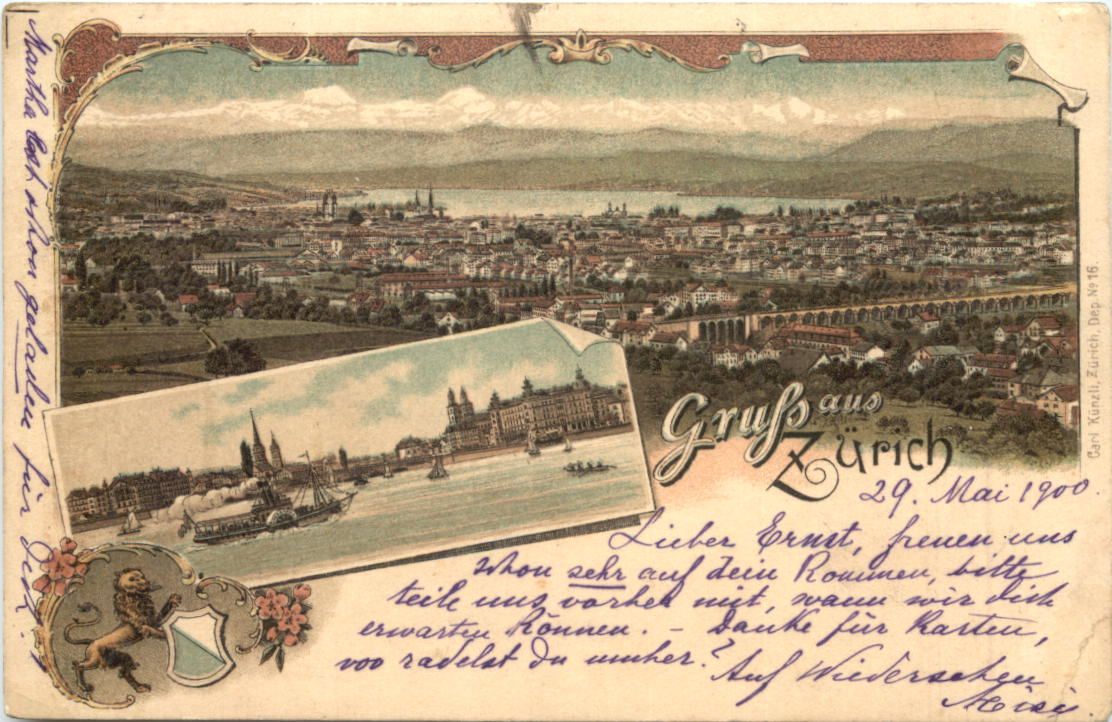 Gruss aus
Zürich
29. Mai 1900.
Lieber Ernst, freuen uns
schon sehr auf dein Kommen, bitte
teile uns vorher mit, wann wir dich
erwarten können. – Danke für Karten,
wo radelst du umher?
Auf Wiedersehen
Martha ist schon geladen für Dich!
Carl Künzli, Zürich, Dep. No 16.